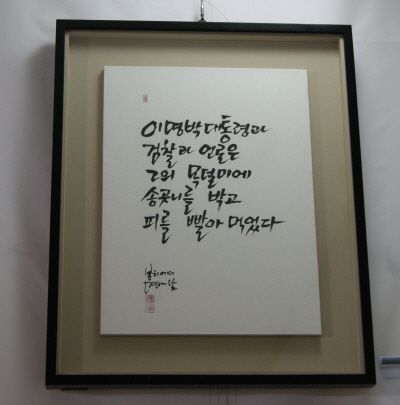 이명박대통령과
검찰과 언론은
그의 목덜미에
송곳니를 박고
피를 빨아 먹었다